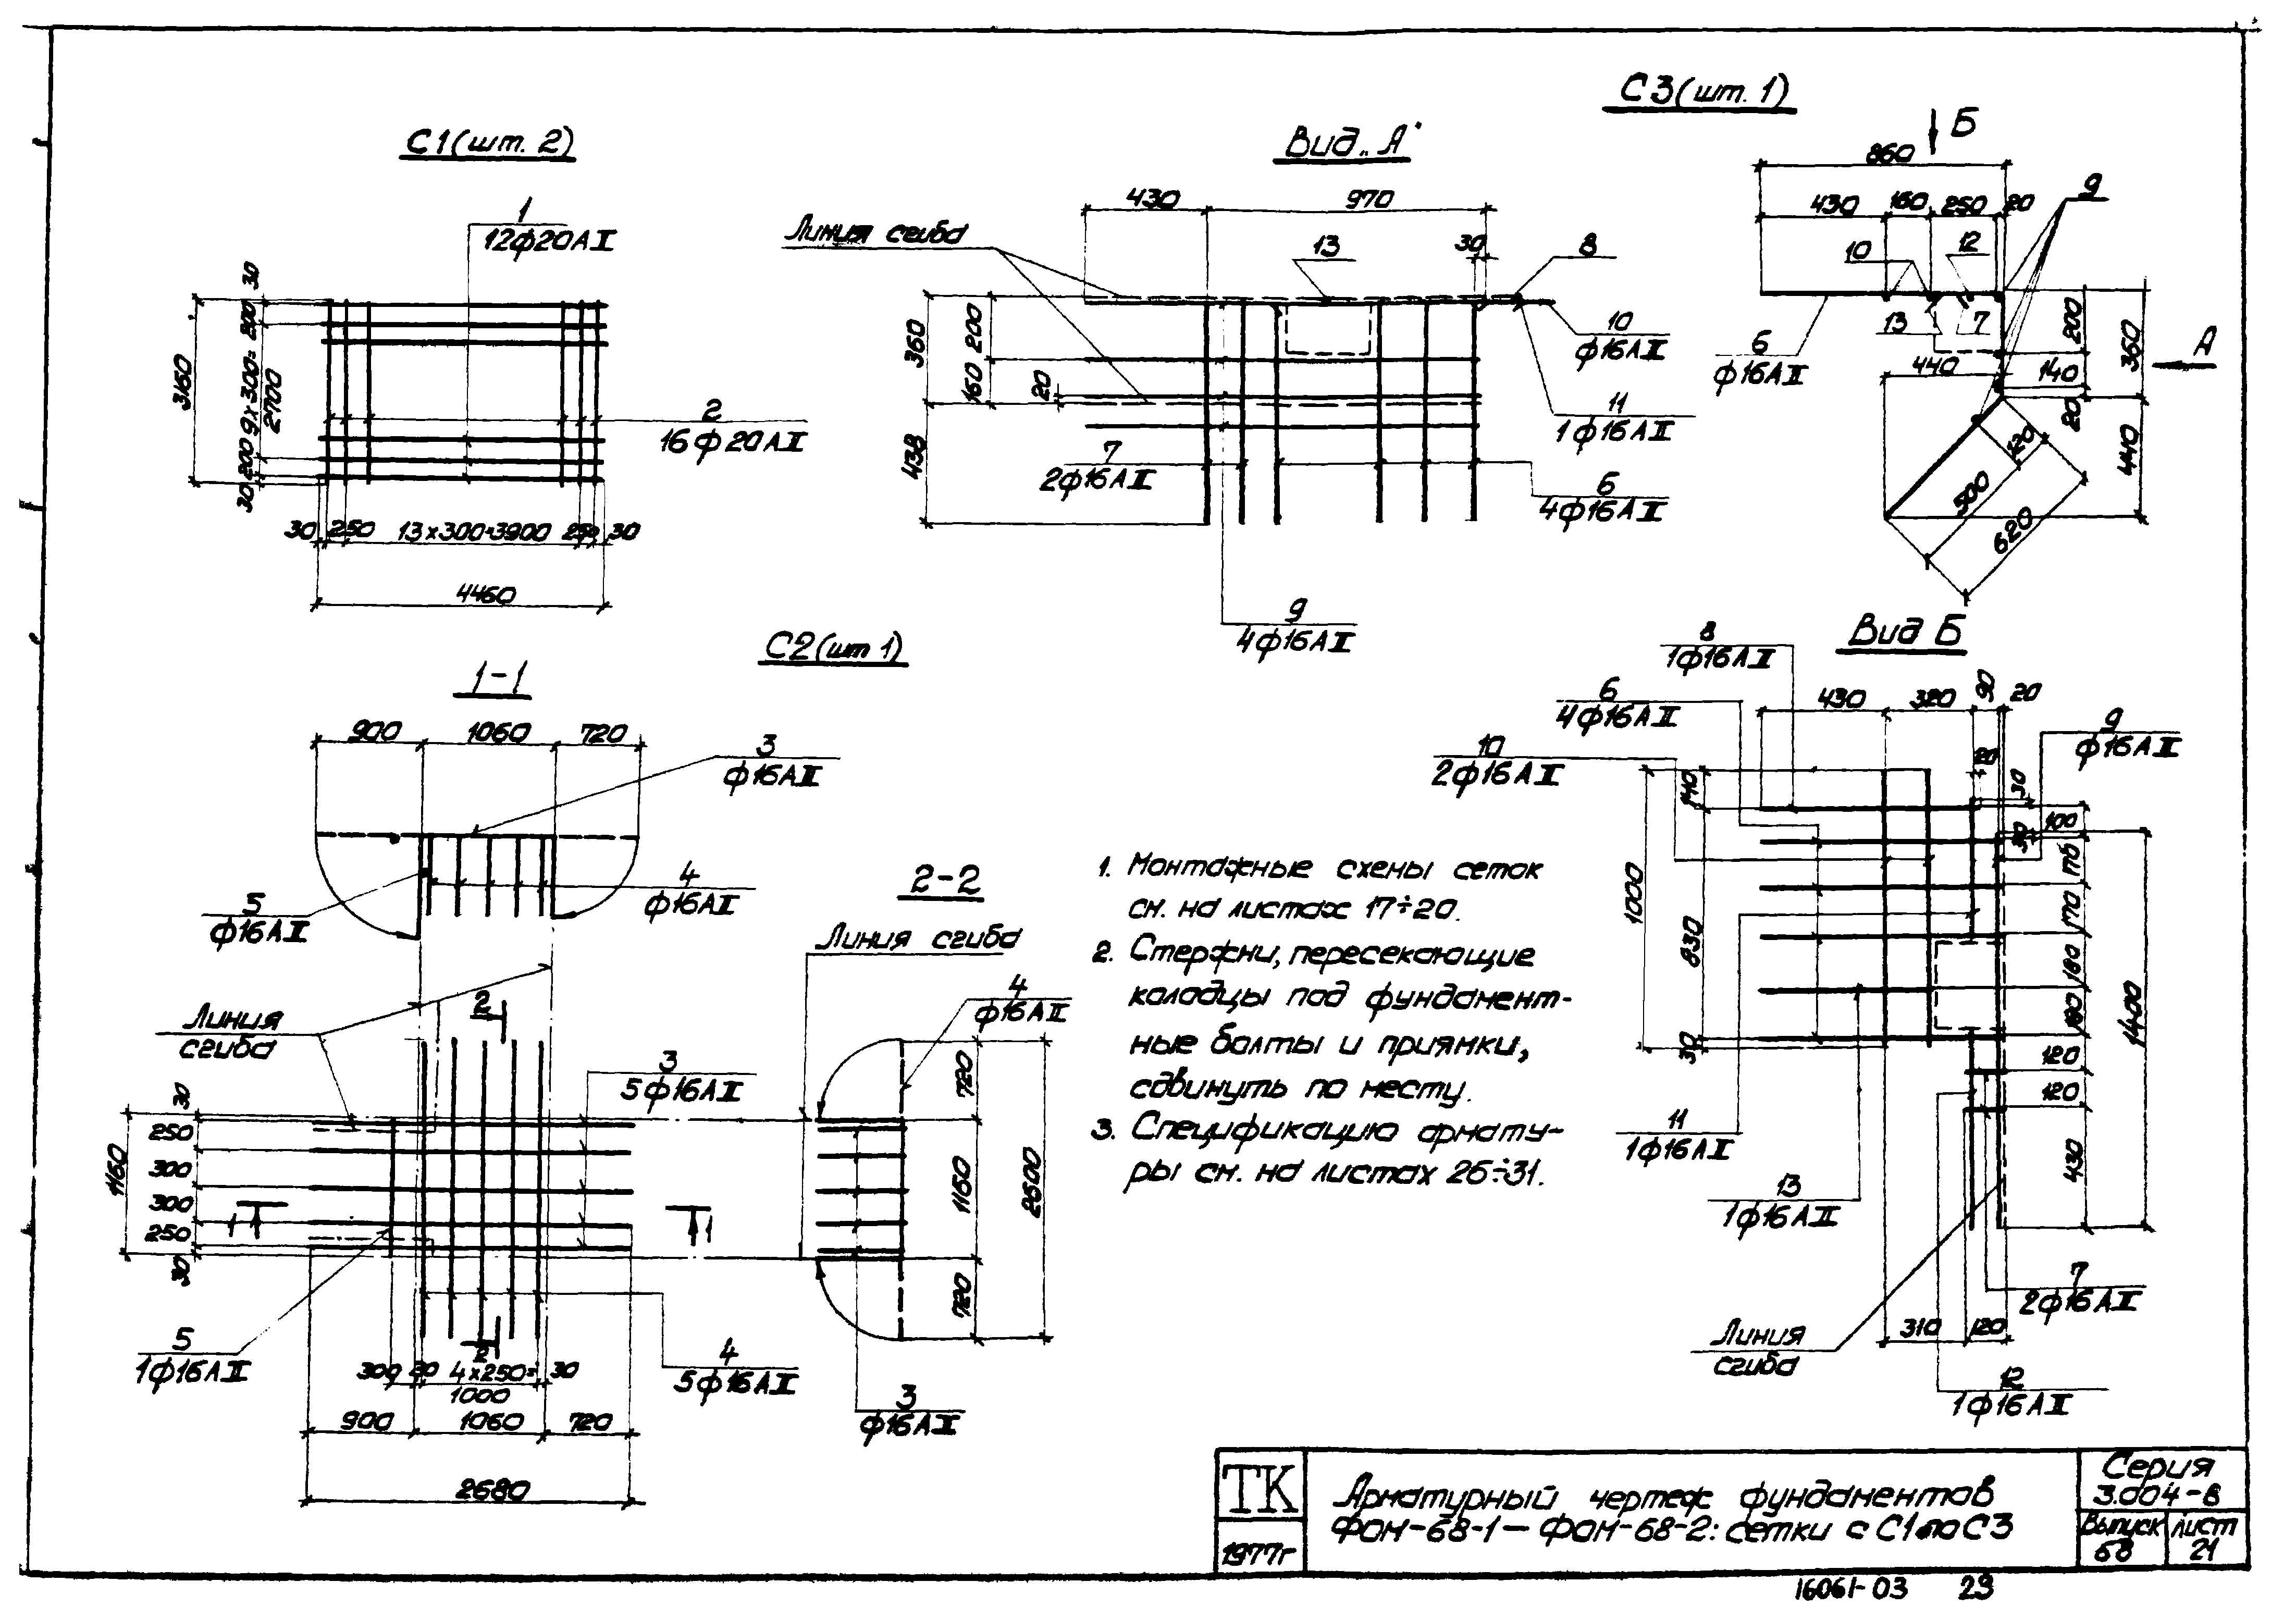 С1 (шт. 2)
1
12ф20АII
30
200
9х300=
2700
200
30
3160
2
16ф20АII
30 250 13х300=3900 250 30
4460
Вид „А"
430 970
Линия сгиба
13
30
8
10
ф16АII
11
1ф16АII
360
200
160
20
438
7
2ф16АII
6
4ф16АII
9
4ф16АII
С3 (шт. 1)
Б
860
430 160 250 20
9
10 12
13 7
6
ф16АII
440
200
140
20
360
440
А
120
500
620
С2 (шт 1)
1-1
900 1060 720
3
ф16АII
5
ф16АII
4
ф16АII
Линия
сгиба
2
3
5ф16АII
30
250
300
300
250
30
1160
1
1
5
1ф16АII
2
4
5ф16АII
300 30 4х250= 30
1000
900 1060 720
2680
2-2
Линия сгиба
4
ф16АII
720
1160
720
2600
3
ф16АII
Вид Б
8
1ф16АII
6
4ф16АII
10
2ф16АII
430 320 90 20
9
ф16АII
20
30
30
140
830
30
1000
100
170
180
180
120
120
430
1400
11
1ф16АII
13
1ф16АII
7
2ф16АII
310 120
Линия
сгиба
12
1ф16АII
1. Монтажные схемы сеток
см. на листах 17÷20.
2. Стержни, пересекающие
колодцы под фундамент-
ные болты и приямки,
сдвинуть по месту.
3. Спецификацию армату-
ры см. на листах 26÷31.
ТК
1977г
Арматурный чертеж фундаментов
ФОМ-68-1 — ФОМ-68-2: сетки с С1 по С3
Серия
3.004-8
Выпуск лист
68 21
16061-03 23